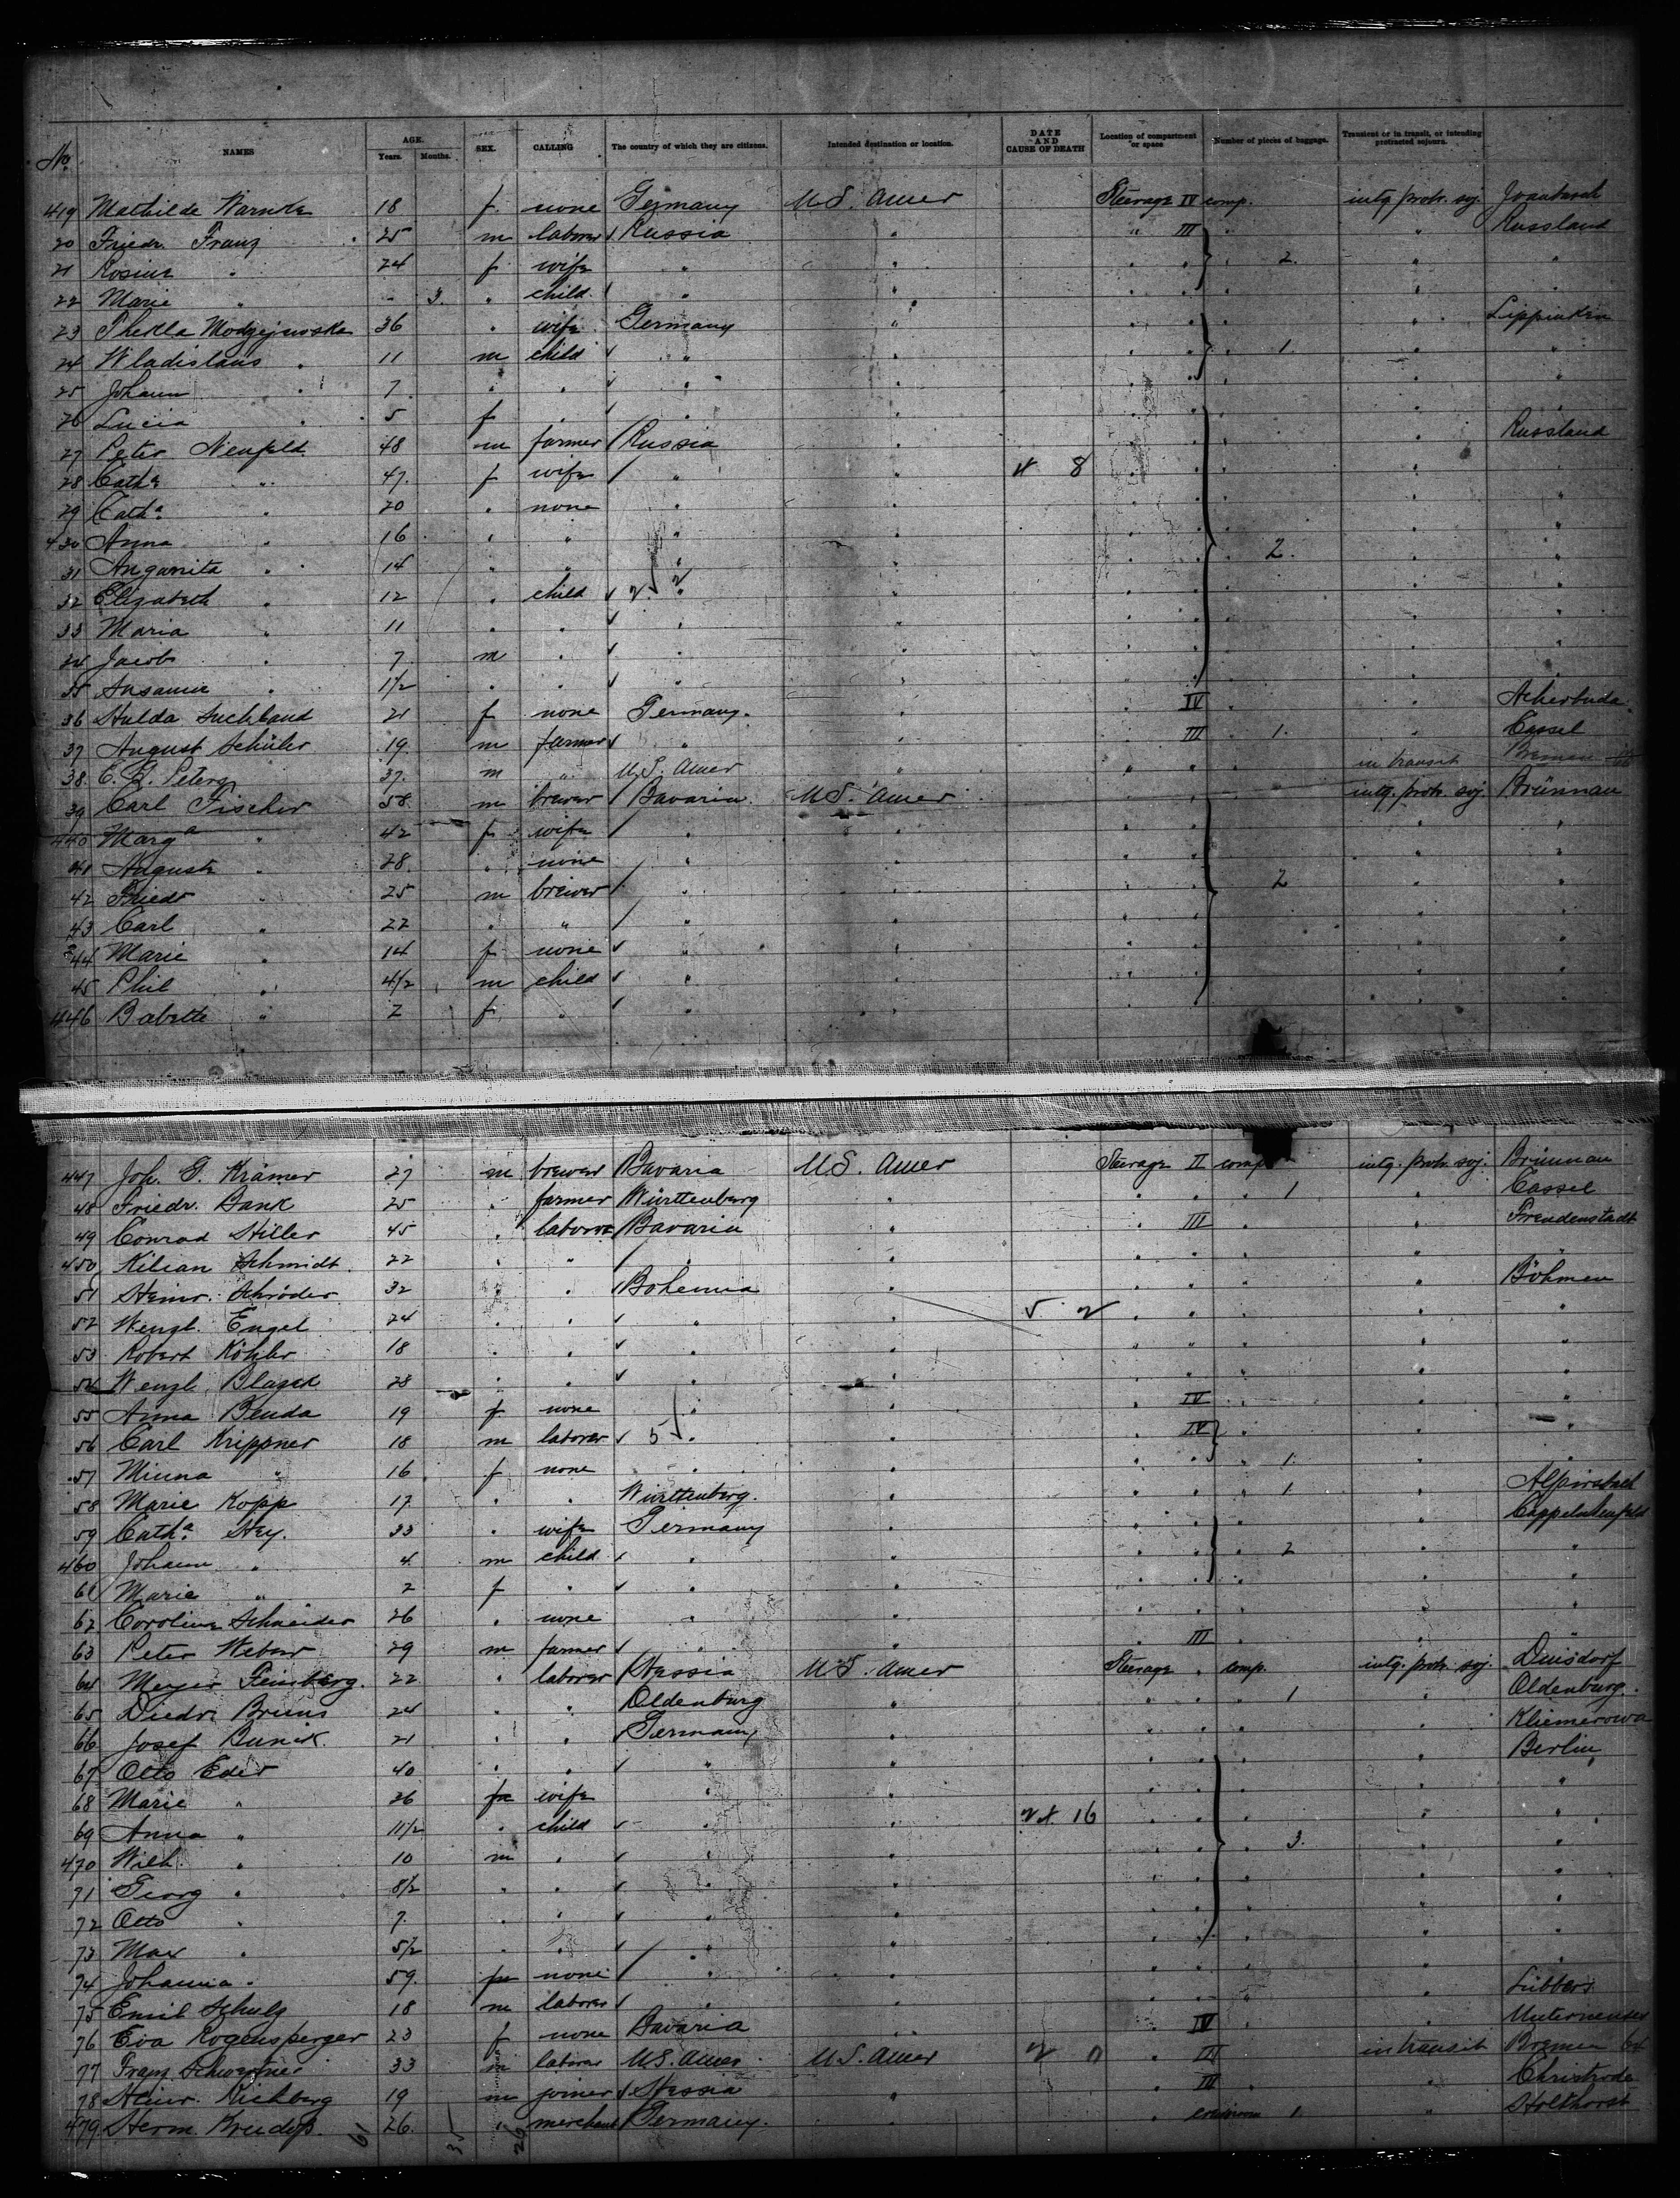 No. NAMES AGE. Years. Months. SEX. CALLING The country of which they are citizens. Intended destination or location. DATE AND CAUSE OF DEATH Location of compartment or space Number of pieces of baggage. Transient or in transit, or intending protracted sojourn.
419 Mathilde Warnke 18 f. none Germany U.S. Amer Steerage IV comp. intg. protr. soj.
20 Friedr. Franz 25 m laborer Russia " " III " " Russland
21 Rosine " 24 f. wife " " " " " 2. " "
22 Marie " - 3. " child " " " " " " "
23 Thekla 36 " wife Germany " " " " "
24 Wladislaus " 11 m child " " " " " 1. " "
25 Johann " 7 " " " " " " " " "
26 Lucia " 5 f " " " " " " " "
27 Peter Neufeld 48 m farmer Russia " " " " " Russland
28 Catha. " 47. f wife " " 8 " " " " "
29 Catha. " 20 " none " " " " " " "
430 Anna " 16 " " " " " " " " "
31 " 14 " " " " " " 2. " "
32 Elizabeth " 12 " child " " " " " " "
33 Maria " 11 " " " " " " " " "
34 Jacob " 7 m " " " " " " " "
35 " 1 1/2 " " " " " " " " "
36 Hulda Suchland 21 f none Germany. " " IV " "
37 August Schüler 19. m farmer " " " III " 1. " Cassel
38. 37. m " U.S. Amer " " " " in transit Bremen
39 Carl Fischer 58 m brewer Bavaria U.S. Amer " " " intg. protr. soj. Brünnau
440 Marga " 42 f. wife " " " " " " "
41 Auguste " 28. " none " " " " " " "
42 Friedr " 25 m brewer " " " " " 2 " "
43 Carl " 22 " " " " " " " " "
44 Marie " 14 f. none " " " " " " "
45 Phil " 4 1/2 m child " " " " " " "
446 Babette " 2 f. " " " " " " " "
447 Joh. G. Krämer 27 m brewer Bavaria U.S. Amer Steerage II comp intg. protr. soj. Brünnau
48 Friedr. Bank 25 " farmer Württenberg " " " " 1 " Cassel
49 Conrad Hiller 45 " laborer Bavaria " " III " " Freudenstadt
450 Kilian Schmidt. 22 " " " " " " " " "
51 Heinr. Schröder 32 " " Bohemia " " " " " Böhmen
52 Wenzl. Engel 24 " " " " " " " " "
53 Robert Köhler 18 " " " " " " " " "
54 Wenzl. Blazek 28 " " " " " " " " "
55 Anna Benda 19 f. none " " " IV " " "
56 Carl Krippner 18 m laborer 5 " " " IV " " "
57 Minna " 16 f none " " " " " 1. " "
58 Marie Kopp 17 " " Württenberg. " " " " 1. " Alpirsbach
59 Catha. Hey. 33 " wife Germany " " " " "
460 Johann " 4 m child " " " " " 2 " "
61 Marie " 2 f " " " " " " " "
62 Caroline Schneider 26 " none " " " " " " "
63 Peter Weber 29 m farmer " " " III " " "
64 Meyer Feinberg. 22 " laborer Hessia U.S. Amer Steerage " comp. intg. protr. soj. Duisdorf
65 Diedr. Bruns 24 " " Oldenburg " " " " 1 " Oldenburg.
66 Josef 21 " " Germany " " " " " Kliemerowa
67 Otto Eder 40 " " " " " " " " Berlin
68 Marie " 26 fe wife " " " " " " "
69 Anna " 11 1/2 " child " " 16 " " " " "
470 Wilh. " 10 m " " " " " " 3. " "
71 Georg " 8 1/2 " " " " " " " " "
72 Otto " 7. " " " " " " " " "
73 Max " 5 1/2 " " " " " " " " "
74 Johanna " 59. fe none " " " " " " "
75 Emil Schulz 18 m laborer " " " " " " Lübbers
76 Eva Rogensperger 23 f none Bavaria " " IV " "
77 Franz 33 m laborer U.S. Amer U.S. Amer " III " in transit Bremen
78 Heinr. Kichberg 19 m joiner Hessia " " III " " Christrode
479 Herm. 26. " merchant Germany. " " 1 " Holthorst